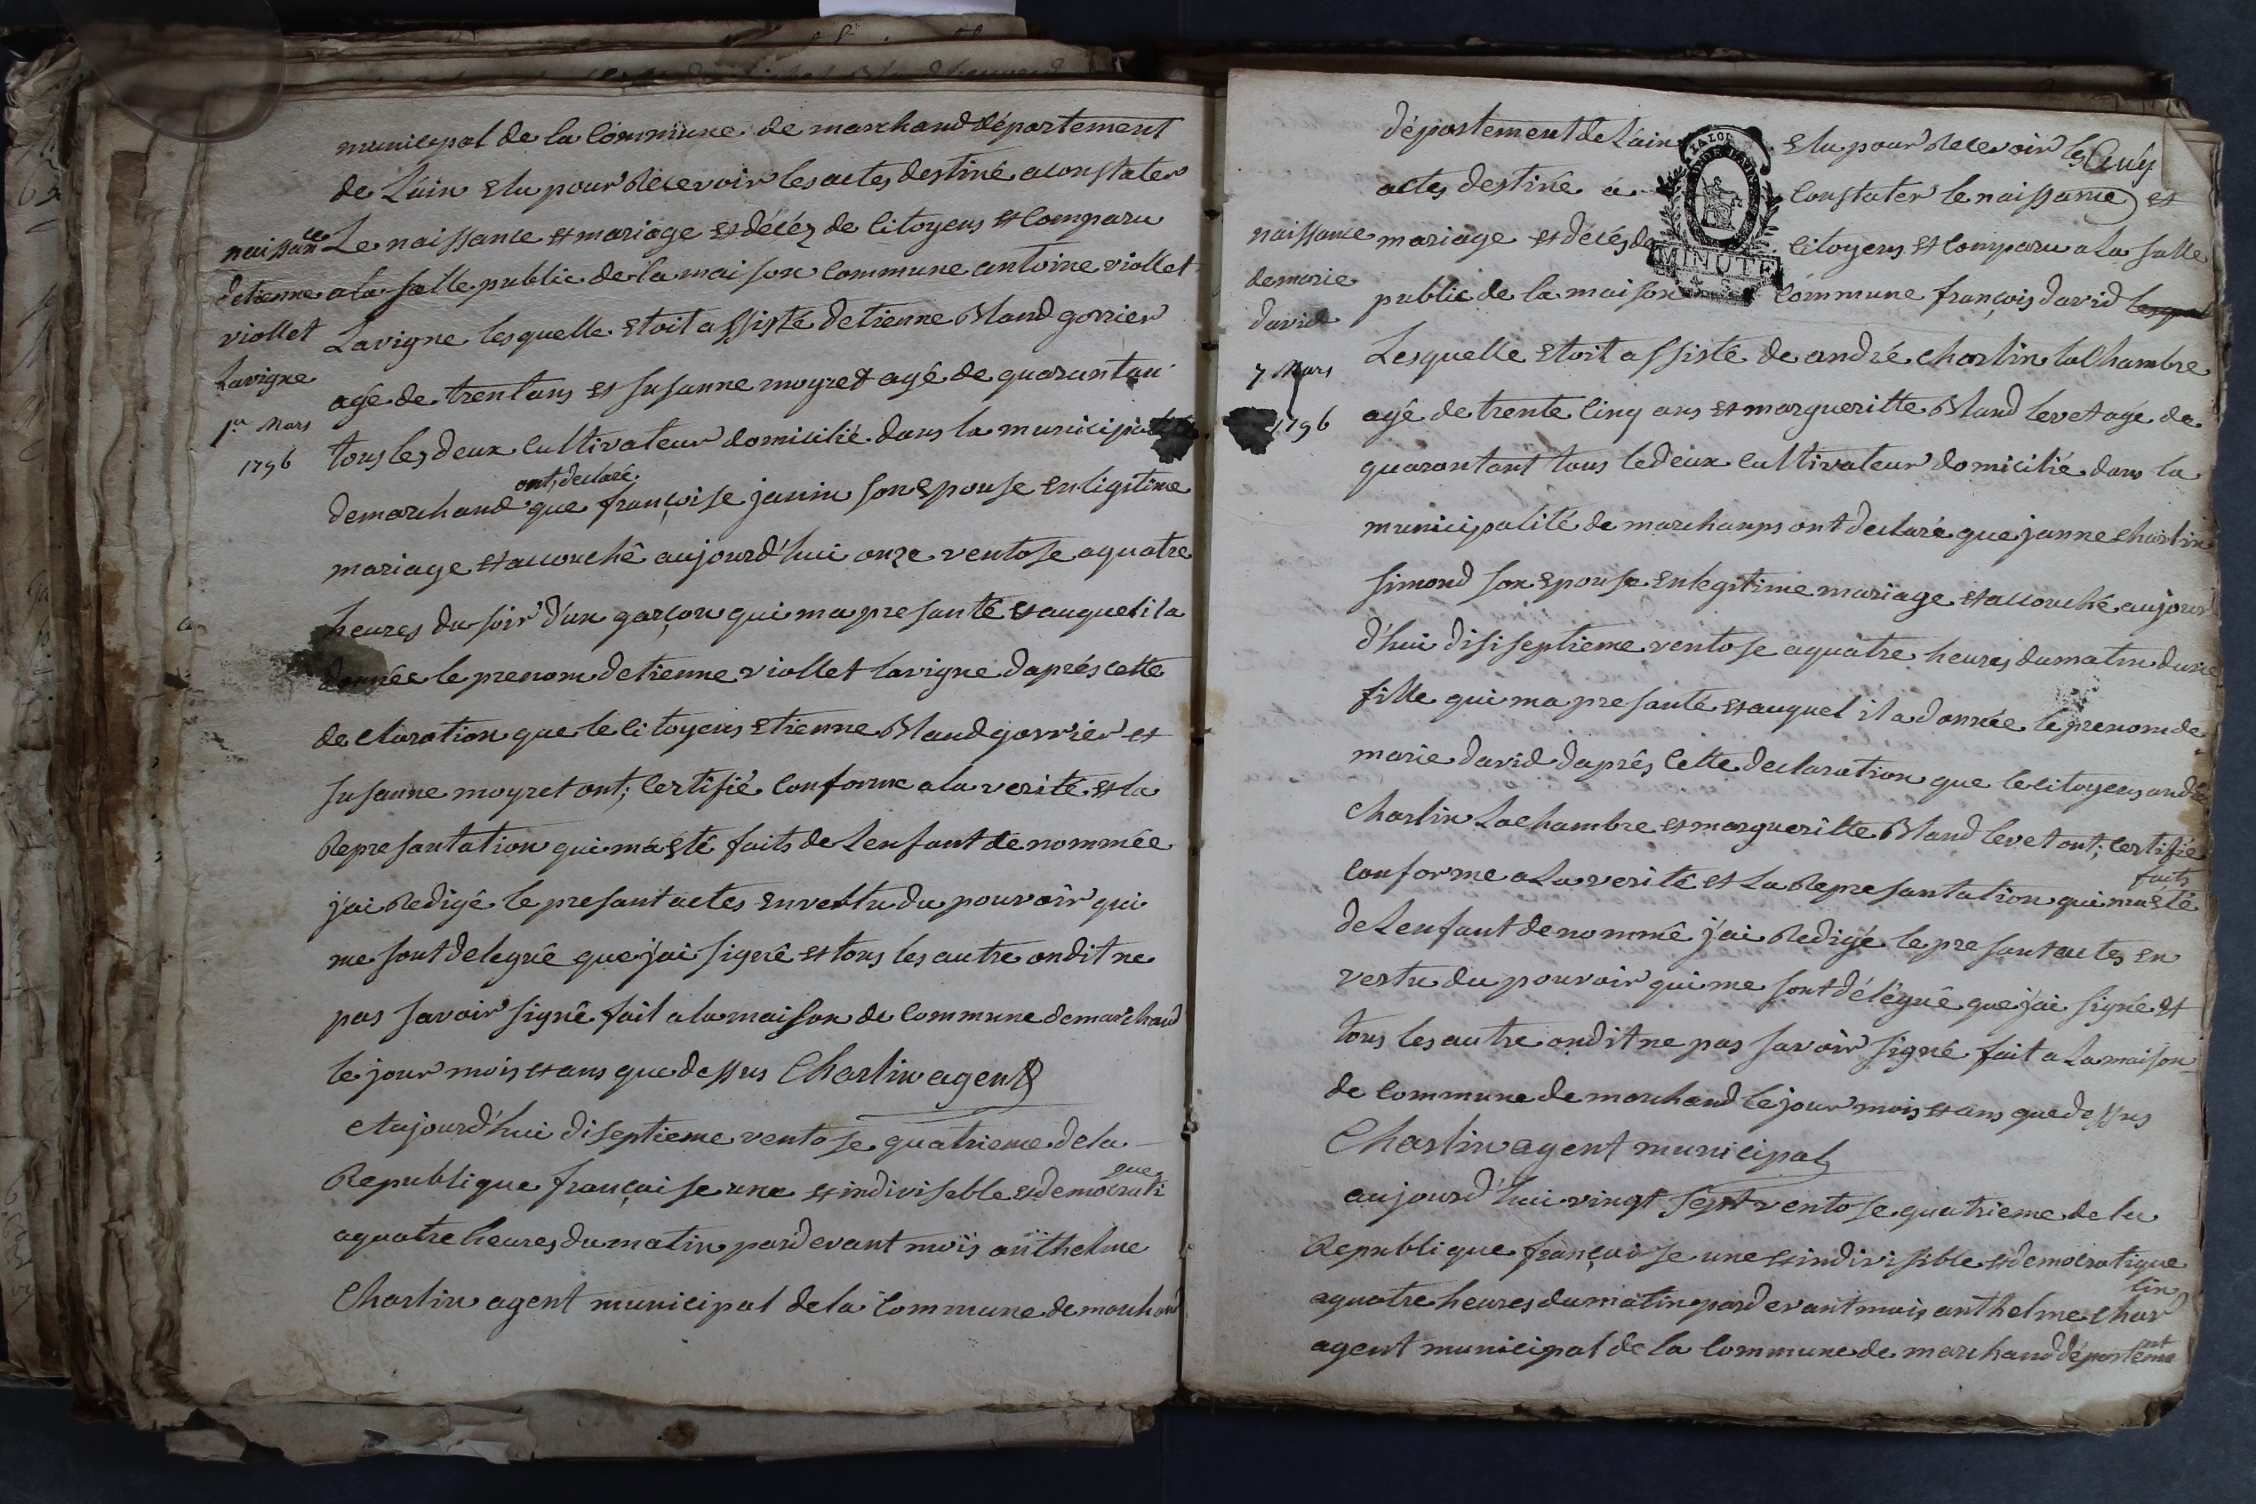 municipal de la Commune de marchand département
de Lain Elu pour Recevoir les actes destiné a constater
Le naissance et mariage et décéz de Citoyens et Comparu
a la salle public de la maison Commune antoine viollet
Lavigne lesquelle Etoit assisté detienne Bland gorrier
agé de trentans et susanne moyret agé de quarantan
tous les deux Cultivateur domicilié dans la
demarchand que françoise janin son Epouse En ligitime
ont declaré
mariage et accouché aujourd'hui onze ventose a quatre
heures du soir d'un garçon qui ma presanté et auquel il a
donnée le prenom detienne viollet lavigne daprés cette
declaration que le Citoyens Etienne Bland gorrier et
susanne moyret ont; Certifié Conforme a la verité et la
Represantation qui ma Eté faits de Lenfant denommée
j'ai Redigé le presant actes En vertu du pouvoir qui
me sont delegué que j'ai signé et tous les autre ondit ne
pas savoir signé fait a la maison de Commune demarchand
le jour mois et ans que dessus Charlin agent
aujourd'hui diseptieme ventose quatrieme de la
Republique française une et indivisible et democrati
que
a quatre heures du matin pardevant mois anthelme
Charlin agent municipal de la Commune de marchand
naissance
detienne
viollet
Lavigne
1er Mars
1796
département de Lain Elu pour Recevoir les
actes destiné a Constater le naissance et
mariage et décés de Citoyens et Comparu a la salle
public de la maison Commune françois david
Lesquelle Etoit assisté de andré Charlin lachambre
agé de trente Cinq ans et margueritte Bland levet agé de
quarantant tous le deux Cultivateur domicilié dans la
municipalité de marchamps ont declaré que janne Charlin
simond son Epouse En legitime mariage et accouché aujour
d'hui disiseptieme ventose a quatre heures du matin dune
fille qui ma presanté et auquel il a donnée le prenom de
marie david daprés Cette declaration que le Citoyens andré
Charlin Lachambre et margueritte Bland levet ont; Certifié
Conforme a La verité et La Represantation qui ma Eté
faits
de Lenfant denommé j'ai Redigé le presant actes En
vertu du pouvoir qui me sont délégué que j'ai signé et
tous les autre ondit ne pas savoir signé fait a La maison
de Commune de marchand le jour mois et ans que dessus
Charlin agent municipal
aujourd'hui vingt sept ventose quatrieme de la
Republique française une et indivisible et democratique
a quatre heures du matin pardevant mois anthelme Char
lin
agent municipal de la Commune de marchand départeme
ent
naissance
de marie
david
7 Mars
1796
MINUTE